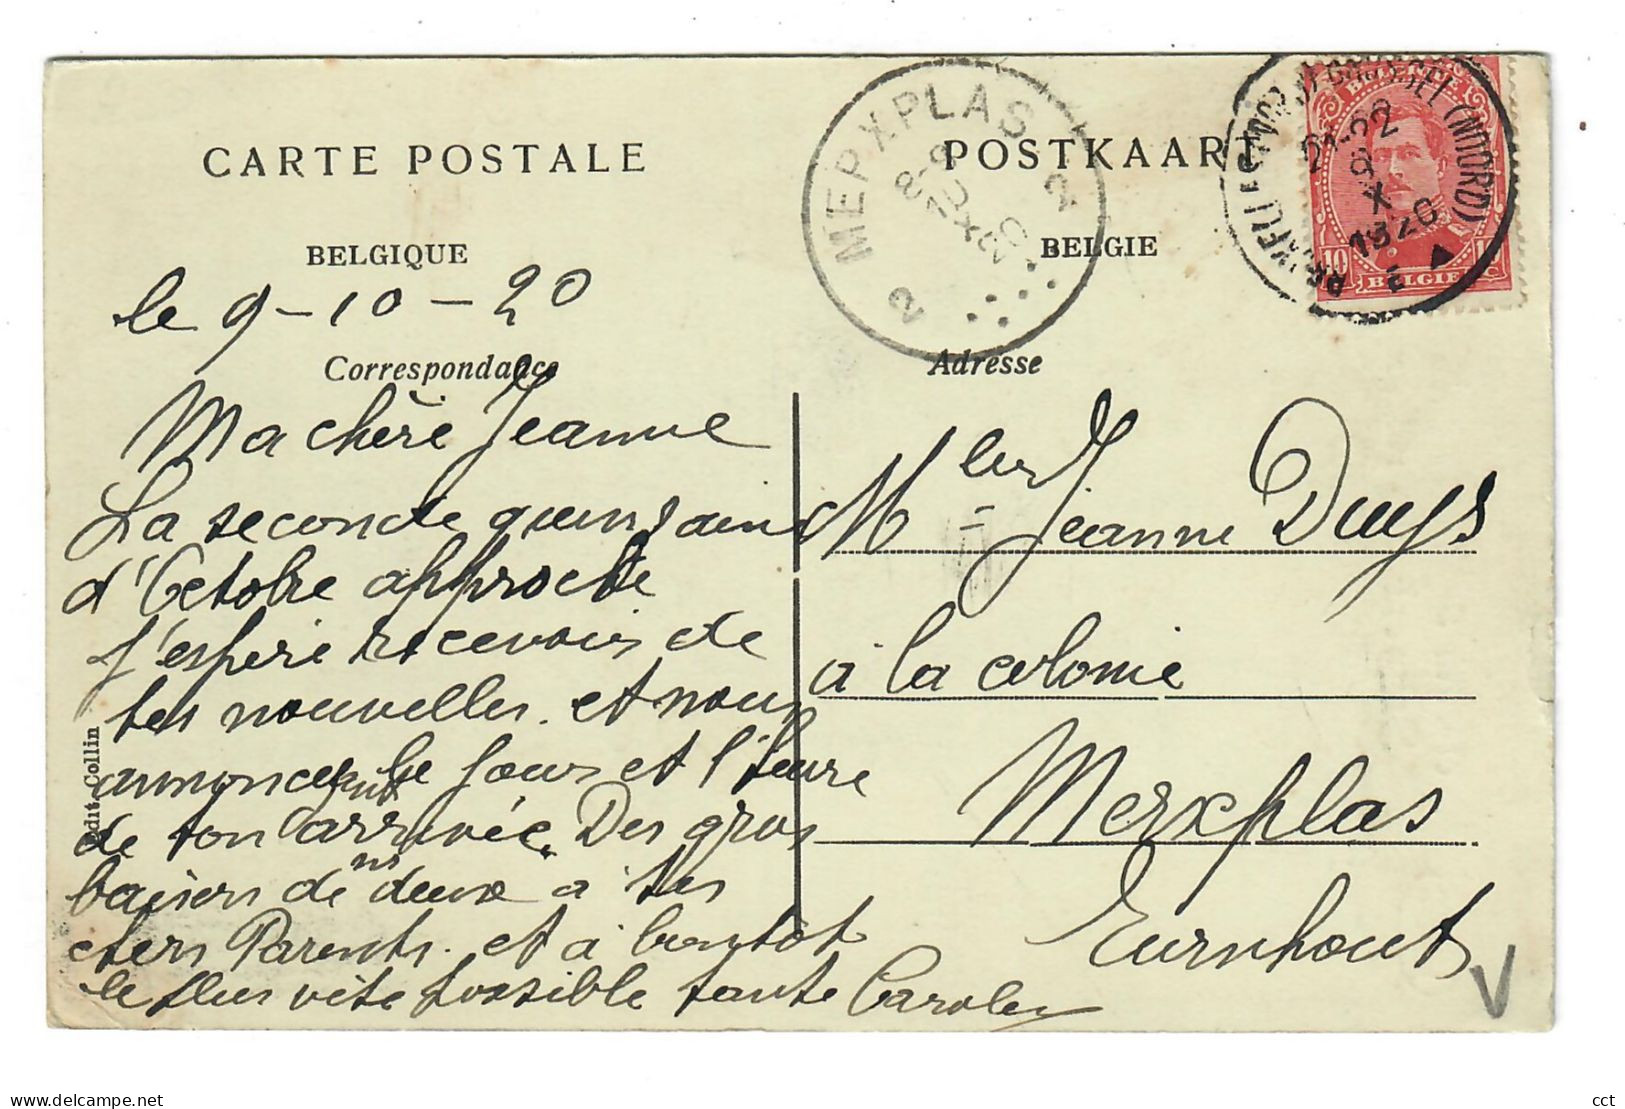 CARTE POSTALE
POSTKAART
BELGIQUE
BELGIE
MERXPLAS
2 2
8-9
10 X
20
BRUXELLES (NORD) BRUSSEL (NOORD)
21-22
9
X
1920
E
BELGIE
10
le 9-10-20
Correspondance
Adresse
Ma chère Jeanne
La seconde quinzaine
d'Octobre approche
j'espère recevoir de
tes nouvelles. et nous
annoncer le jour et l'heure
de ton arrivée. Des gros
baisers de ns deux a tes
chers Parents. et à bientôt
le plus vite possible tante Caroline
Edit. Collin
Melle Jeanne Duys
à la colonie
Merxplas
Turnhout
V
cct